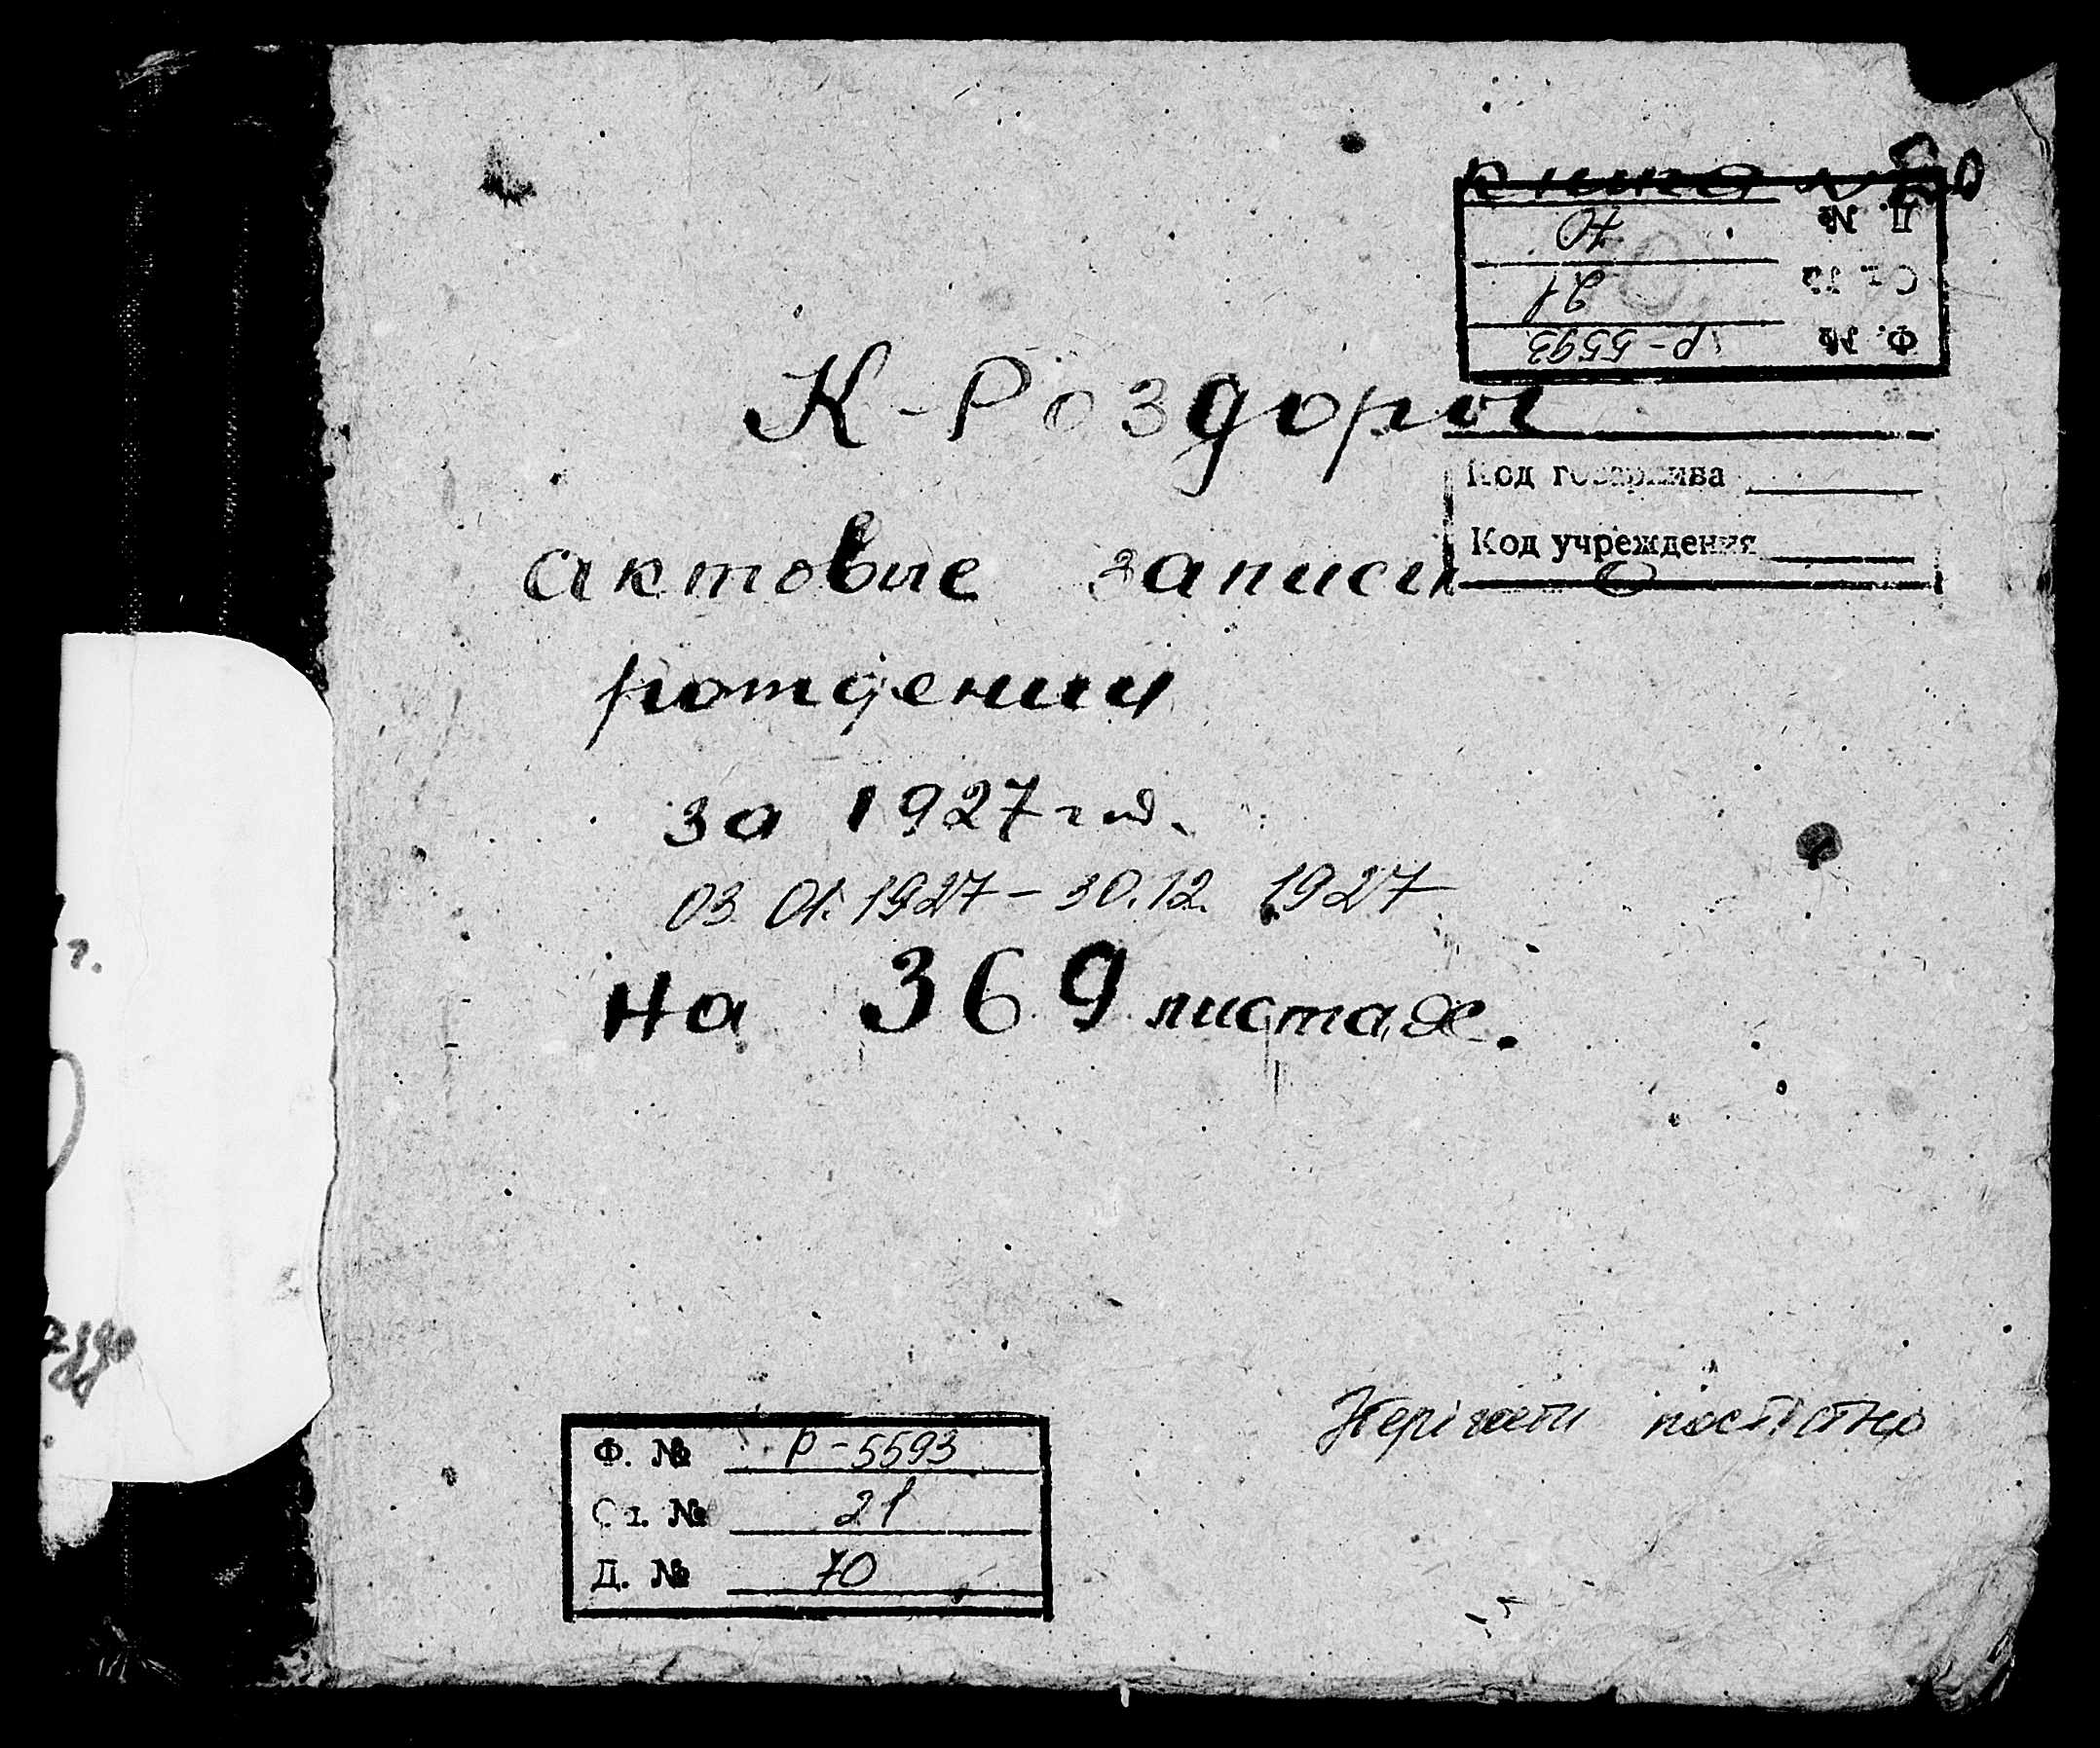 Книга № 20
Д. № 70
Оп. № 21
Ф. № Р-5593
К-Роздоры
Код госархива
Код учреждения
актовые записи
рождении
за 1927 год.
03.01.1927 – 30.12.1927
на 369 листах.
г.
Зберігати постійно
Ф. № Р-5593
Оп. № 21
Д. № 70